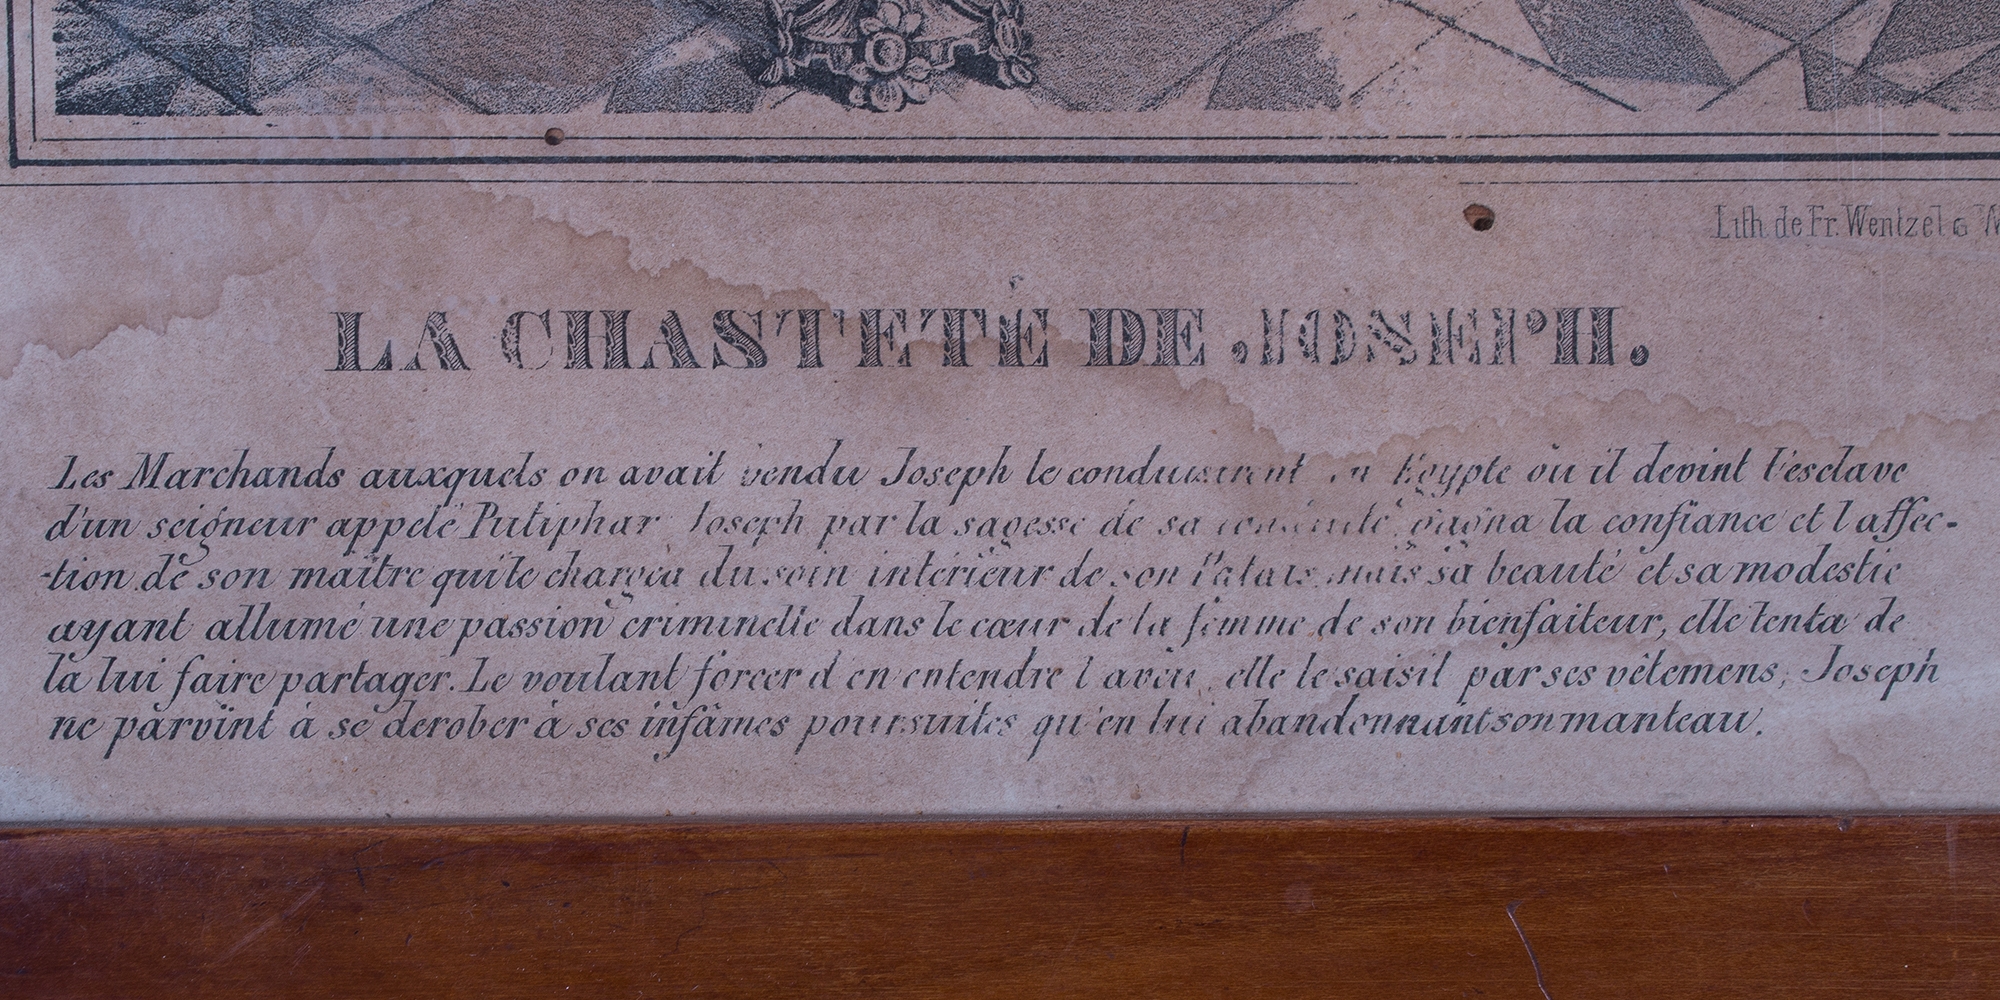 Lith. de Fr. Wentzel à
LA CHASTETÉ DE JOSEPH.
Les Marchands auxquels on avait vendu Joseph le conduisirent en Egypte où il devint l'esclave
d'un seigneur appelé Putiphar Joseph par la sagesse de sa conduite gagna la confiance et l'affec-
-tion de son maître qui le chargea du soin intérieur de son Palais mais sa beauté et sa modestie
ayant allumé une passion criminelle dans le cœur de la femme de son bienfaiteur, elle tenta de
la lui faire partager. Le voulant forcer d'en entendre l'aveu, elle le saisit par ses vêtemens, Joseph
ne parvint à se derober à ses infâmes poursuites qu'en lui abandonnant son manteau.